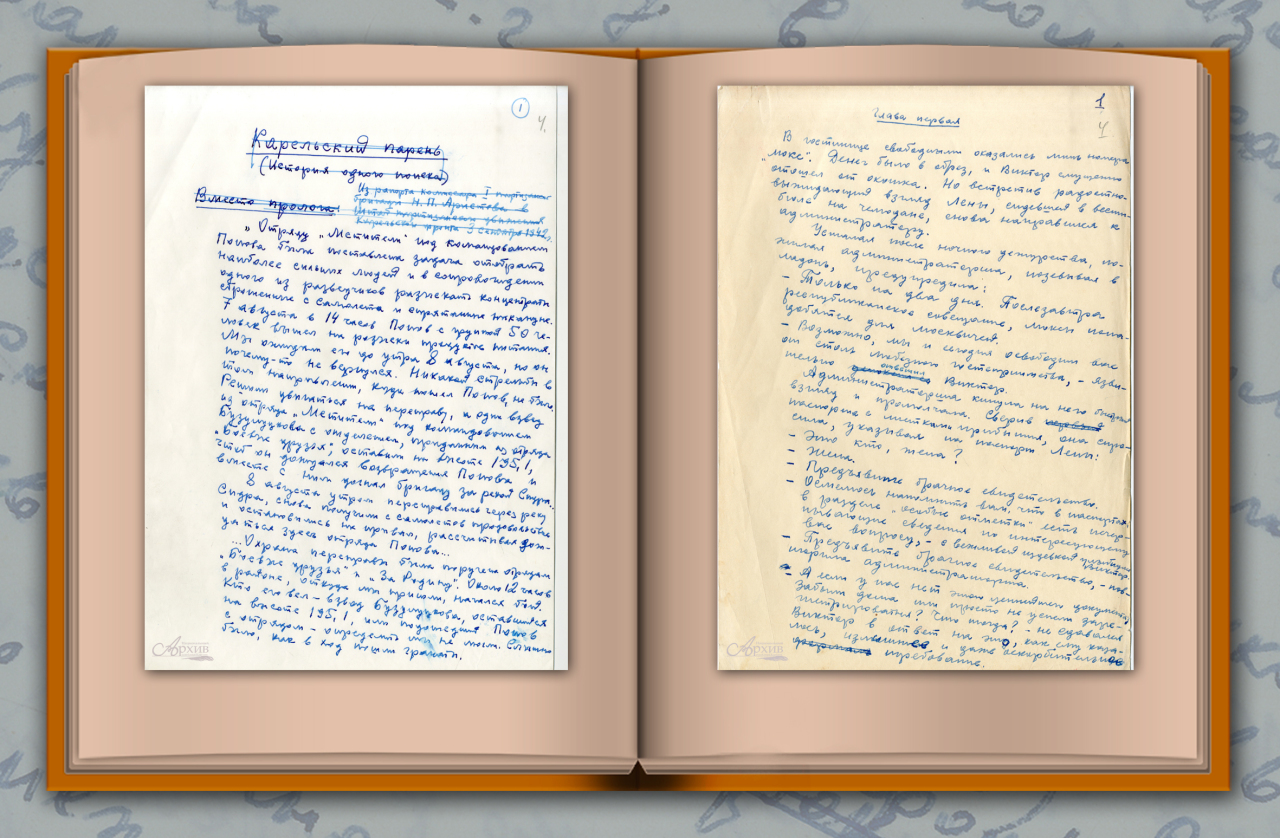 1
4.
Карельский парень
(История одного поиска)
Вместо пролога
Из рапорта комиссара I партизанской
бригады Н. П. Аристова в
штаб партизанского движения
Карельского фронта 3 сентября 1942 г.
„Отряду „Мститель" под командованием
Попова была поставлена задача отобрать
наиболее сильных людей и в сопровождении
одного из разведчиков разыскать концентраты
сброшенные с самолета и спрятанные накануне.
7 августа в 14 часов Попов с группой 50 че-
ловек вышел на розыски продуктов питания.
Мы ожидали его до утра 8 августа, но он
почему-то не вернулся. Никакой стрельбы в
том направлении, куда пошел Попов, не было.
Решили двигаться на переправу, и один взвод
из отряда „Мститель" под командованием
Бузулукова с отделением, приданным из отряда
„Боевые друзья", оставили на высоте 195,1,
чтоб он дождался возвращения Попова и
вместе с ним догнал бригаду за рекой Сидра.
8 августа утром переправились через реку
Сидра, снова получили с самолетов продовольствие
и остановились на привал, рассчитывая дож-
даться здесь отряда Попова...
...Охрана переправы была поручена отрядам
„Боевые друзья" и „За Родину". Около 12 часов
в районе, откуда мы пришли, начался бой.
Кто его вел – взвод Бузулукова, оставшийся
на высоте 195,1, или подошедший Попов
с отрядом – определить мы не могли. Слышно
было, как в ход пошли гранаты.
Архив
1
4
Глава первая
В гостинице свободными оказались лишь номера
„люкс". Денег было в обрез, и Виктор смущенно
отошел от окошка. Но встретив радостно
выжидающий взгляд Лены, сидевшей в вести-
бюле на чемодане, снова направился к
администратору.
Уставшая после ночного дежурства, по-
жилая администраторша, позевывая в
ладонь, предупредила:
– Только на два дня. Послезавтра
республиканское совещание, люксы пона-
добятся для москвичей.
– Возможно, мы и сегодня освободим вас
от столь любезного гостеприимства, – язви-
тельно ответил Виктор.
Администраторша кинула на него быстрый
взгляд и промолчала. Сверив
паспорта с листками прибытия, она спро-
сила, указывая на паспорт Лены:
– Это кто, жена?
– Жена.
– Предъявите брачное свидетельство.
– Осмелюсь напомнить вам, что в паспортах
в разделе „особые отметки" есть исчер-
пывающие сведения по интересующему
вас вопросу, – с вежливой издевкой
Виктор.
– Предъявите брачное свидетельство, – пов-
торила администраторша.
– А если у нас нет этого ценнейшего документа,
забыли дома или просто не успели зарег-
истрироваться? Что тогда? – не сдавался
Виктор в ответ на это, как ему каза-
лось, излишнее и даже оскорбительное
требование.
Архив